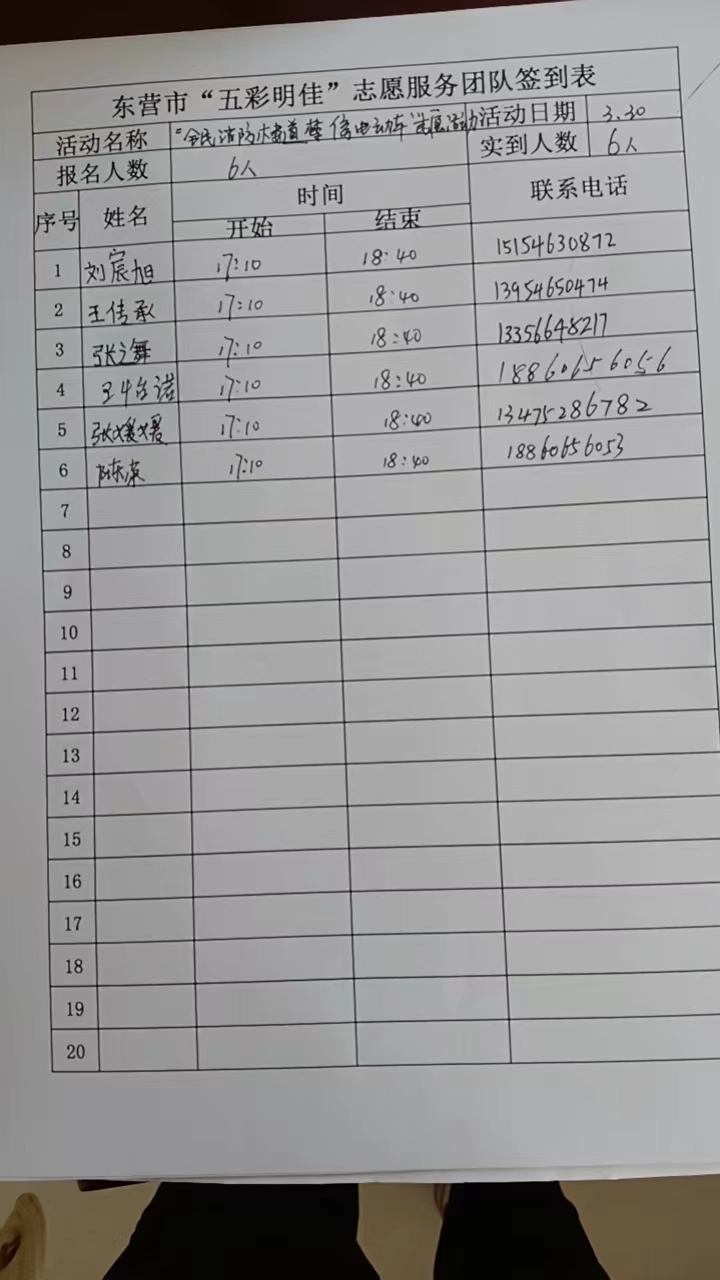 东营市“五彩明佳”志愿服务团队签到表
活动名称 “全民消防 电动车”志愿活动 活动日期 3.30
报名人数 6人 实到人数 6人
序号 姓名 时间 联系电话
开始 结束
1 刘宸旭 17:10 18:40 15154630872
2 王传承 17:10 18:40 13954650474
3 张之舞 17:10 18:40 13356648217
4 王 诺 17:10 18:40 18860656056
5 张媛媛 17:10 18:40 13475286782
6 陈 17:10 18:40 18860656053
7
8
9
10
11
12
13
14
15
16
17
18
19
20